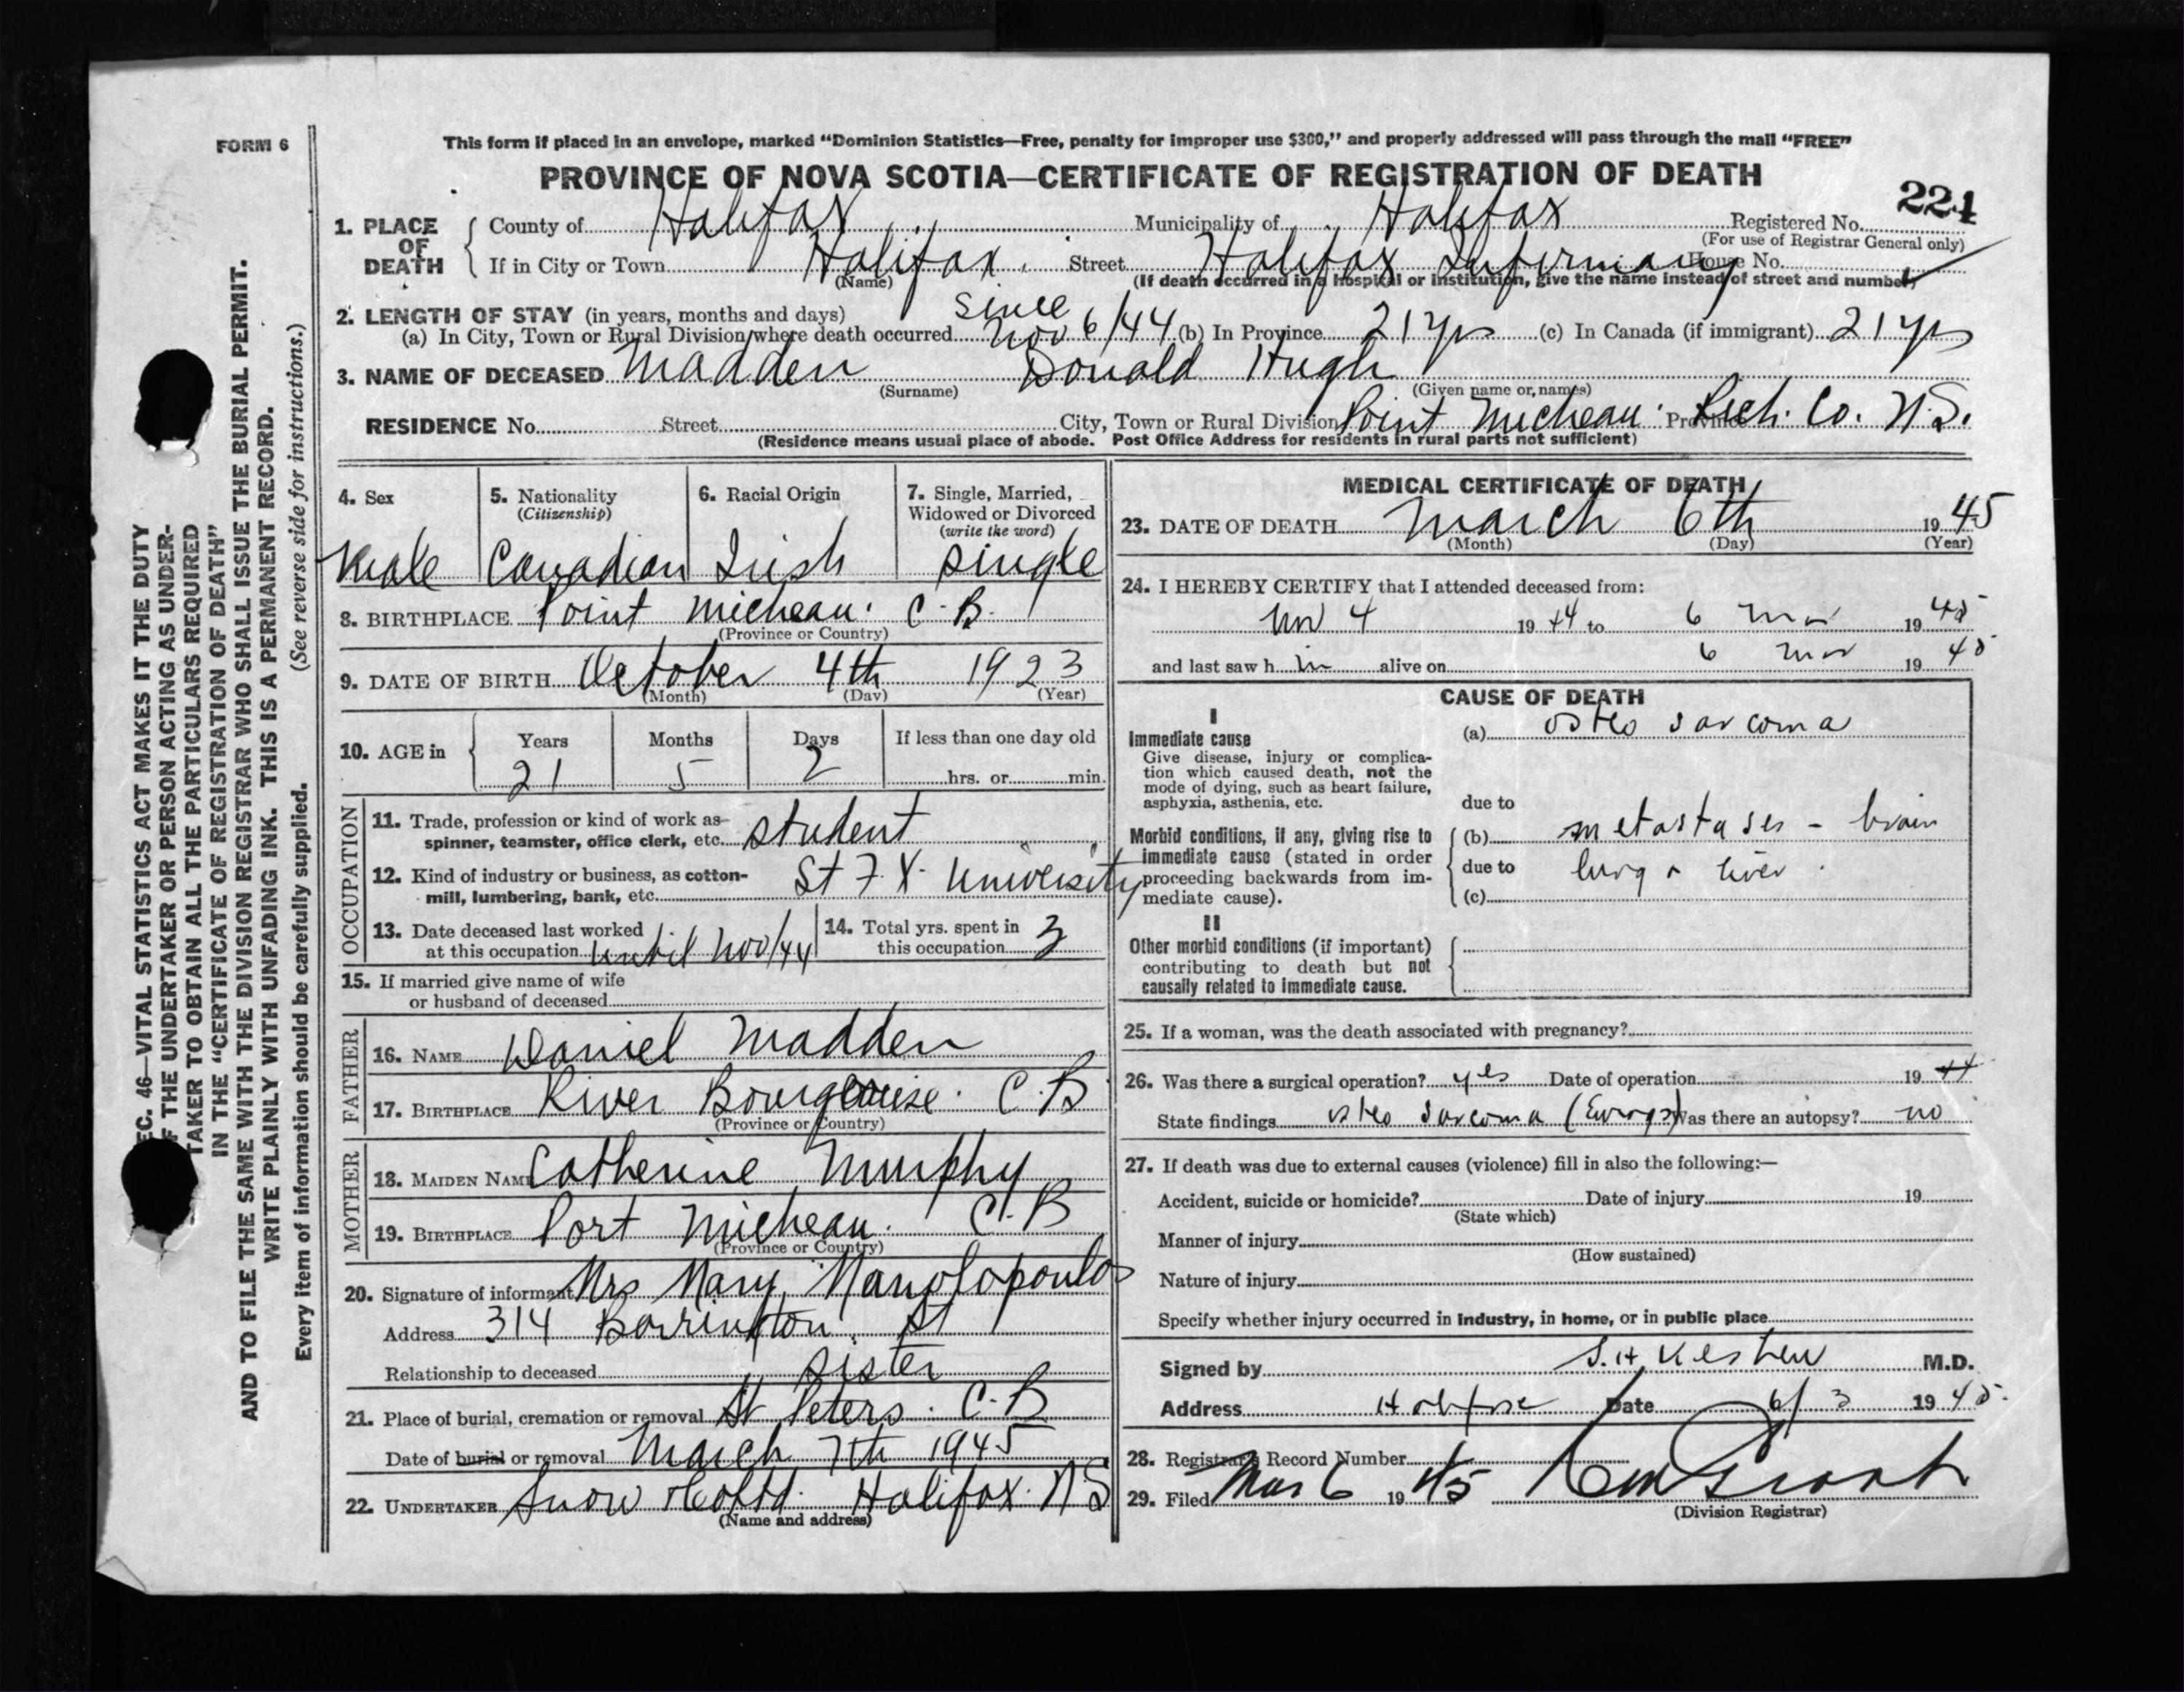 FORM 6
This form if placed in an envelope, marked “Dominion Statistics—Free, penalty for improper use $300,” and properly addressed will pass through the mail “FREE”
PROVINCE OF NOVA SCOTIA—CERTIFICATE OF REGISTRATION OF DEATH
224
1. PLACE OF DEATH
County of Halifax Municipality of Halifax Registered No.
(For use of Registrar General only)
If in City or Town Halifax Street Halifax Infirmary House No.
(Name) (If death occurred in a hospital or institution, give the name instead of street and number)
2. LENGTH OF STAY (in years, months and days)
(a) In City, Town or Rural Division where death occurred since Nov 6/44 (b) In Province 21 yrs (c) In Canada (if immigrant) 21 yrs
3. NAME OF DECEASED Madden Donald Hugh
(Surname) (Given name or names)
RESIDENCE No. Street City, Town or Rural Division Point Micheau. Province Rich. Co. N.S.
(Residence means usual place of abode. Post Office Address for residents in rural parts not sufficient)
4. Sex
Male
5. Nationality
(Citizenship)
Canadian
6. Racial Origin
Irish
7. Single, Married,
Widowed or Divorced
(write the word)
single
8. BIRTHPLACE Point Micheau. C.B.
(Province or Country)
9. DATE OF BIRTH October 4th 1923
(Month) (Day) (Year)
10. AGE in
Years Months Days If less than one day old
21 5 2 hrs. or min.
OCCUPATION
11. Trade, profession or kind of work as—
spinner, teamster, office clerk, etc. student
12. Kind of industry or business, as cotton-
mill, lumbering, bank, etc. St F. X. University
13. Date deceased last worked
at this occupation until Nov/44
14. Total yrs. spent in
this occupation 3
15. If married give name of wife
or husband of deceased
FATHER
16. NAME Daniel Madden
17. BIRTHPLACE River Bourgeoise. C.B
(Province or Country)
MOTHER
18. MAIDEN NAME Catherine Murphy
19. BIRTHPLACE Port Micheau. C.B
(Province or Country)
20. Signature of informant Mrs Mary Manolopoulos
Address 314 Barrington St
Relationship to deceased sister
21. Place of burial, cremation or removal St Peters. C.B
Date of burial or removal March 7th 1945
22. UNDERTAKER Snow & Co Ltd. Halifax. N S
(Name and address)
MEDICAL CERTIFICATE OF DEATH
23. DATE OF DEATH March 6th 1945
(Month) (Day) (Year)
24. I HEREBY CERTIFY that I attended deceased from:
Nov 4 1944 to 6 Mar 1945
and last saw h im alive on 6 Mar 1945
CAUSE OF DEATH
I
Immediate cause
Give disease, injury or complica-
tion which caused death, not the
mode of dying, such as heart failure,
asphyxia, asthenia, etc.
(a) osteo sarcoma
due to
Morbid conditions, if any, giving rise to
immediate cause (stated in order
proceeding backwards from im-
mediate cause).
(b) metastases - brain
due to lung & liver.
(c)
II
Other morbid conditions (if important)
contributing to death but not
causally related to immediate cause.
25. If a woman, was the death associated with pregnancy?
26. Was there a surgical operation? yes Date of operation 1944
State findings osteo sarcoma Was there an autopsy? no
27. If death was due to external causes (violence) fill in also the following:—
Accident, suicide or homicide? Date of injury 19
(State which)
Manner of injury
(How sustained)
Nature of injury
Specify whether injury occurred in industry, in home, or in public place
Signed by M.D.
Address Halifax Date 6/3 1945
28. Registrar's Record Number
29. Filed Mar 6 1945
(Division Registrar)
SEC. 46—VITAL STATISTICS ACT MAKES IT THE DUTY
OF THE UNDERTAKER OR PERSON ACTING AS UNDER-
TAKER TO OBTAIN ALL THE PARTICULARS REQUIRED
IN THE “CERTIFICATE OF REGISTRATION OF DEATH”
AND TO FILE THE SAME WITH THE DIVISION REGISTRAR WHO SHALL ISSUE THE BURIAL PERMIT.
WRITE PLAINLY WITH UNFADING INK. THIS IS A PERMANENT RECORD.
Every item of information should be carefully supplied. (See reverse side for instructions.)